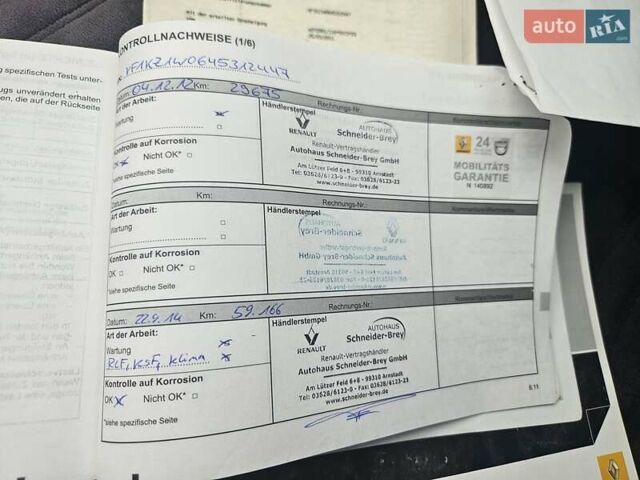 auto RIA.com
KONTROLLNACHWEISE (1/6)
VF1KZ1W0645312447
Datum: 04.12.12 Km: 29675 Rechnungs-Nr.:
Art der Arbeit:
Wartung
Kontrolle auf Korrosion
OK Nicht OK*
*Vehe spezifische Seite
Händlerstempel
RENAULT
AUTOHAUS
Schneider-Brey
Renault-Vertragshändler
Autohaus Schneider-Brey GmbH
Am Lützer Feld 6+8 - 99310 Arnstadt
Tel: 03628/6123-0 - Fax: 03628/6123-23
www.schneider-brey.de
24
MOBILITÄTS
GARANTIE
N 140892
Datum: Km: Rechnungs-Nr.:
Art der Arbeit:
Wartung
Kontrolle auf Korrosion
OK Nicht OK*
*Vehe spezifische Seite
Händlerstempel
AUTOHAUS
Schneider-Brey
Autohaus Schneider-Brey GmbH
Datum: 22.9.14 Km: 59.166 Rechnungs-Nr.:
Art der Arbeit:
Wartung
RLF, KSF, Klima
Kontrolle auf Korrosion
OK Nicht OK*
*Vehe spezifische Seite
Händlerstempel
RENAULT
AUTOHAUS
Schneider-Brey
Renault-Vertragshändler
Autohaus Schneider-Brey GmbH
Am Lützer Feld 6+8 - 99310 Arnstadt
Tel: 03628/6123-0 - Fax: 03628/6123-23
www.schneider-brey.de
6.11
g spezifischen Tests unter-
ugs unverändert erhalten
en, die auf der Rückseite